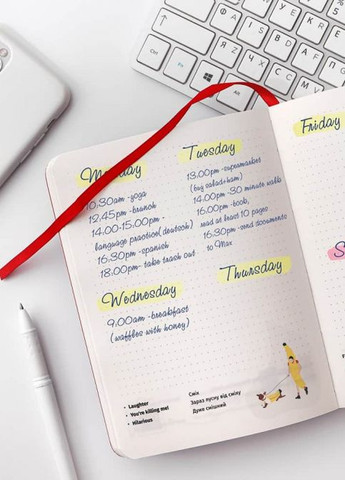 Monday
10.30am -yoga
12.45pm -brunch
14.00-15.00pm -
language practice(deutsch)
16.30pm -spanish
18.00pm- take trash out
Tuesday
13.00pm -supermarket
(buy salad+ham)
14.00pm -30 minute walk
16.00pm -book,
read at least 10 pages
16.30pm -send documents
to Max
Wednesday
9.00am -breakfast
(waffles with honey)
Thursday
Friday
• Laughter
• You're killing me!
• Hilarious
Сміх
Зараз пусну від сміху
Дуже смішний